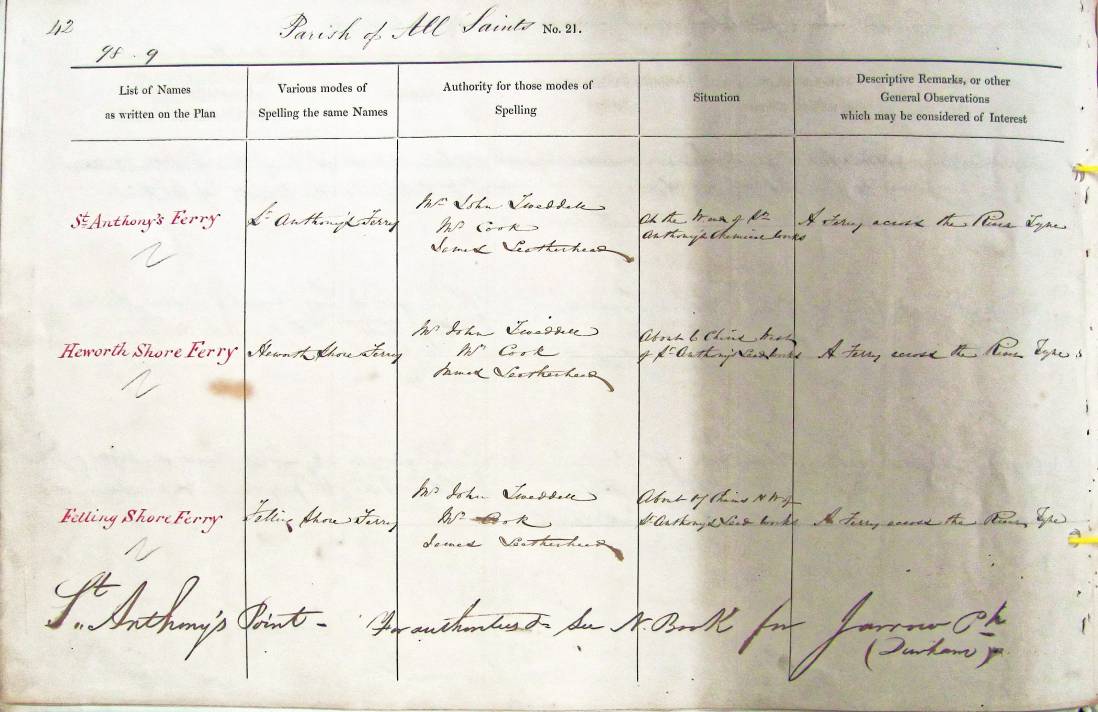 42
Parish of All Saints No. 21.
98.9
List of Names
as written on the Plan
Various modes of
Spelling the same Names
Authority for those modes of
Spelling
Situation
Descriptive Remarks, or other
General Observations
which may be considered of Interest
St. Anthony's Ferry
St Anthony's Ferry
Mr John Tweddell
Mr Cook
James Leatherhead
At the West of St
Anthony's Chemical Works
A Ferry across the River Tyne
Heworth Shore Ferry
Heworth Shore Ferry
Mr John Tweddell
Mr Cook
James Leatherhead
About 6 Chains West
of St Anthony's Lead Works
A Ferry across the River Tyne
Felling Shore Ferry
Felling Shore Ferry
Mr John Tweddell
Mr Cook
James Leatherhead
About 17 Chains N W of
St Anthony's Lead Works
A Ferry across the River Tyne
St. Anthony's Point - For authorities &c See N. Book for Jarrow Ph
(Durham)